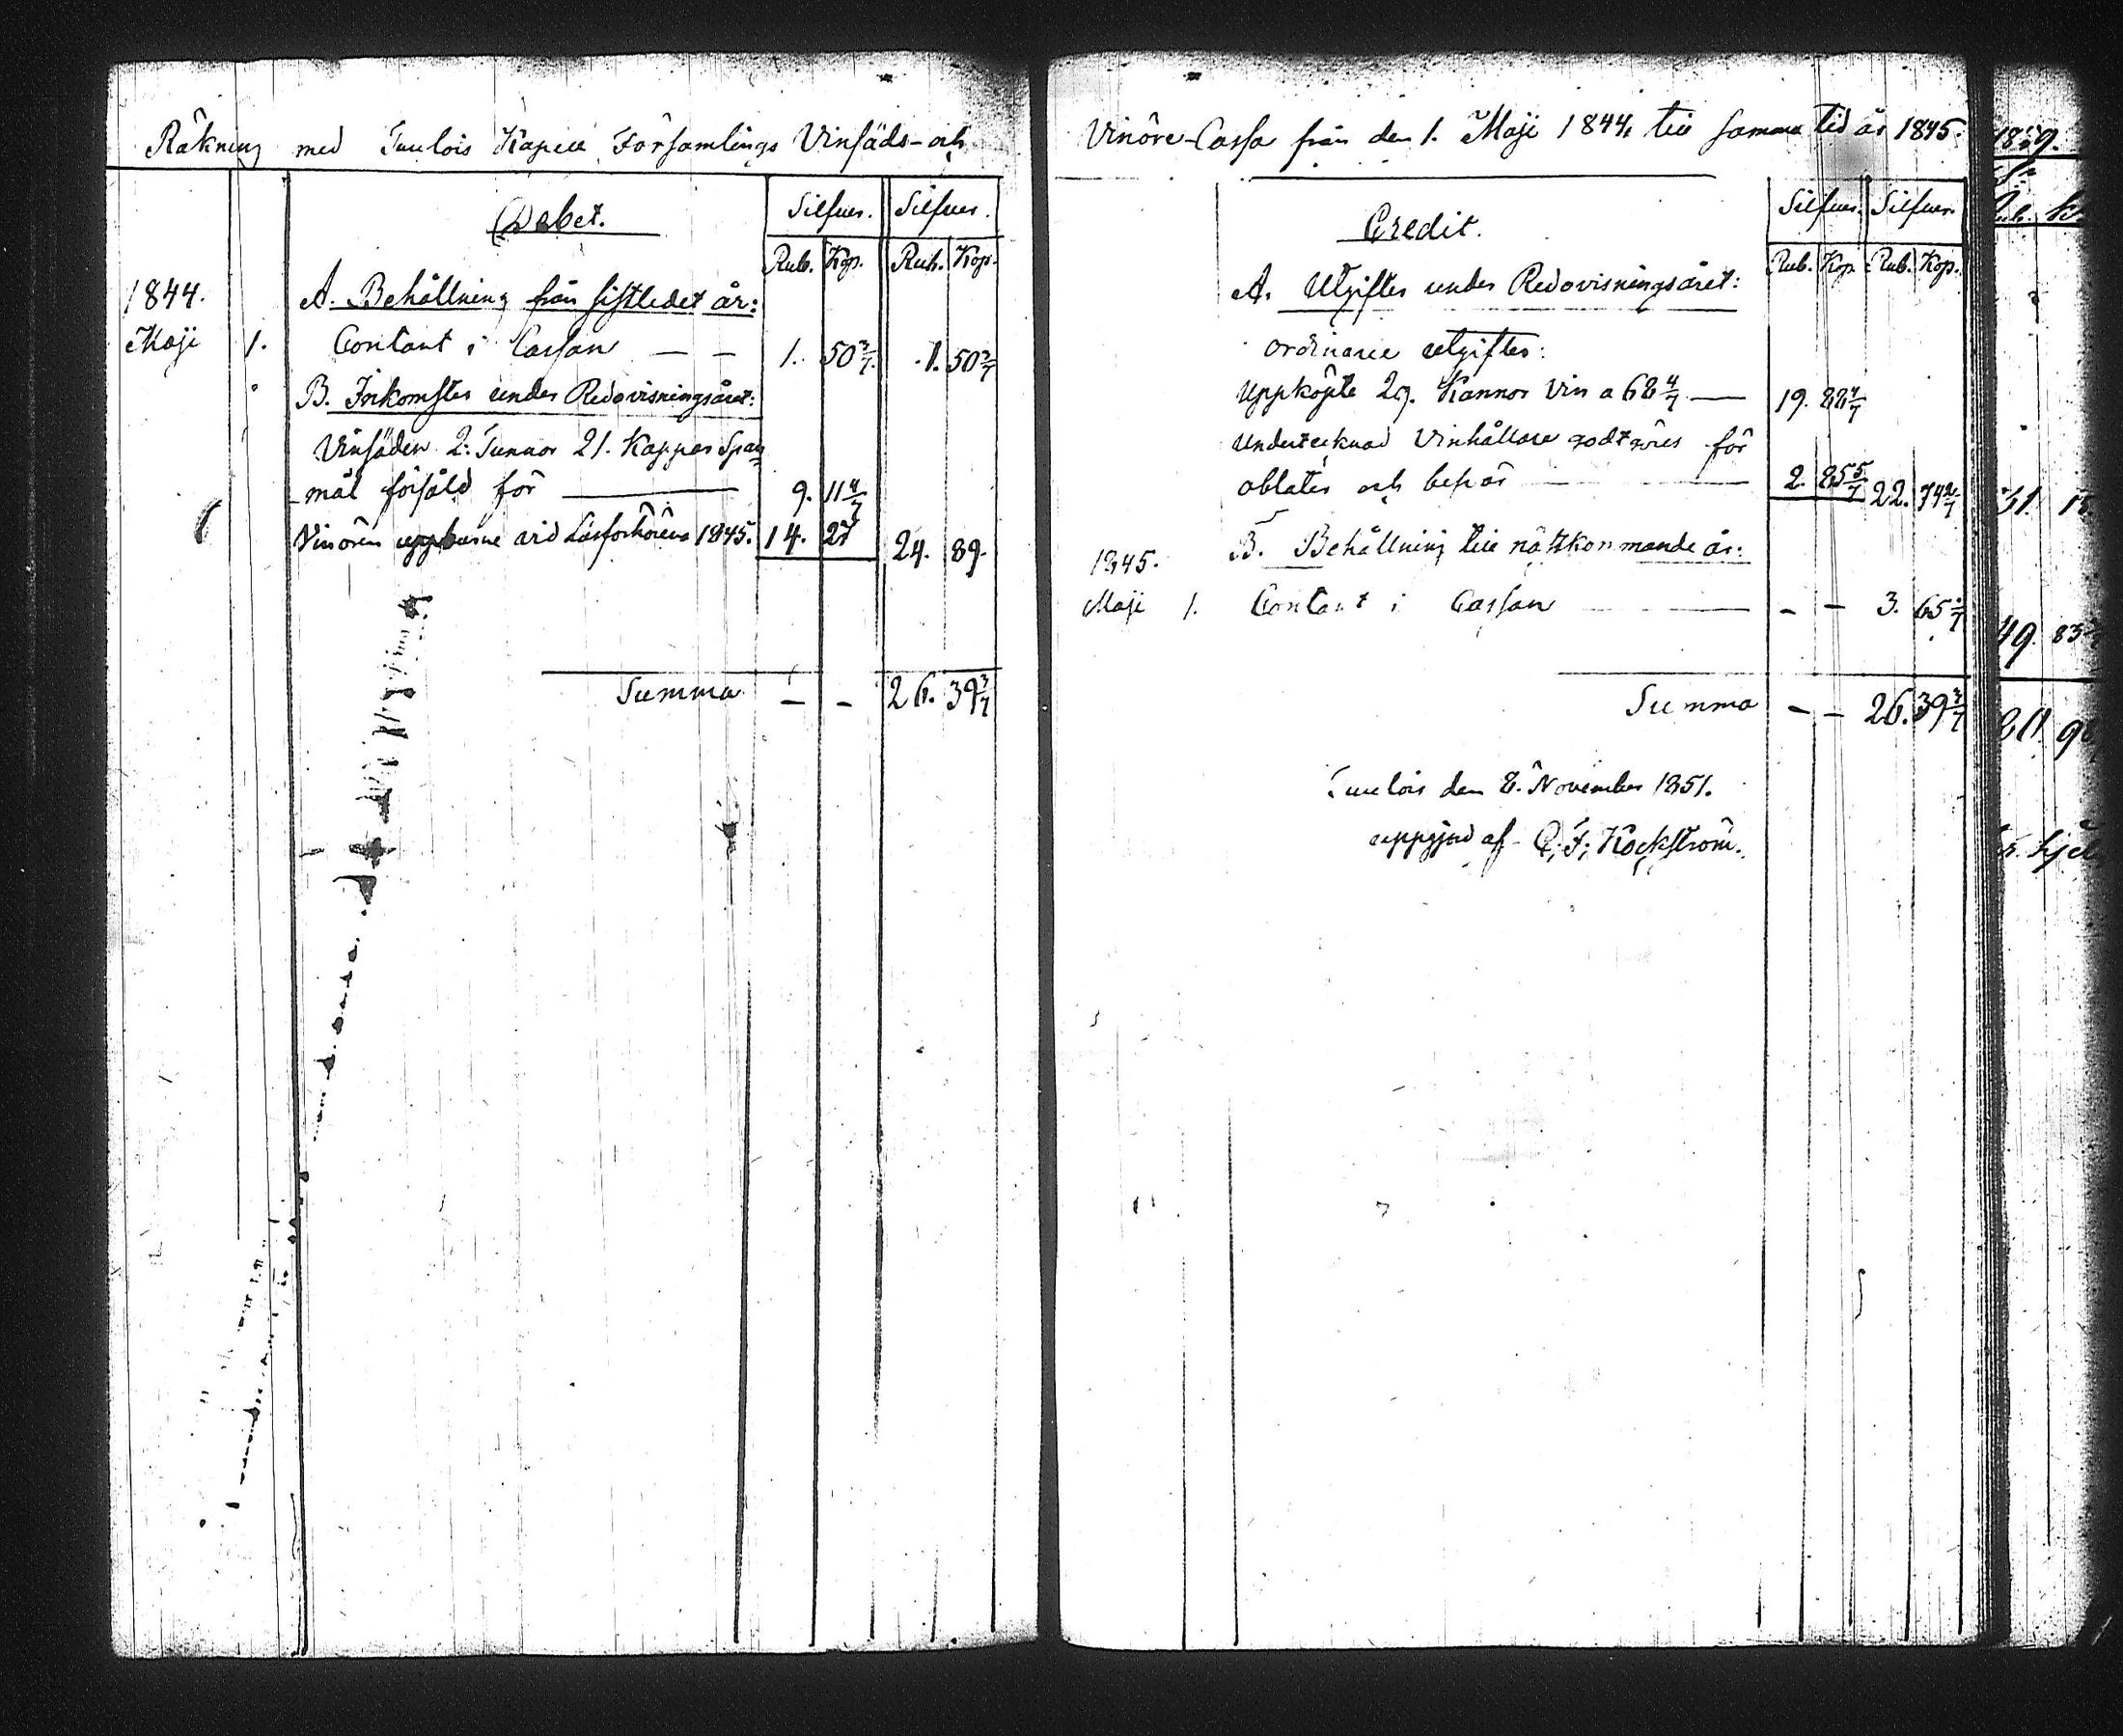 Räkning med Tuulois Kapell Församlings Vinsäds- och
Debet.
Silfver. Silfver.
Rub. Kop. Rub. Kop.
1844. A. Behållning från sistledet år:
Maji 1. Contant i Cassan — — 1. 50 3/7. 1. 50 3/7
B. Inkomster under Redovisningsåret:
Vinsäden 2. Tunnor 21. Kappar Span=
mål försåld för — 9. 11 4/7
Vinören uppburne vid Läsförhören 1845. 14. 24. 89.
Summa — — 26. 39 3/7
Vinöre-Cassa från den 1. Maji 1844 till samma tid år 1845.
Credit.
Silfver. Silfver.
Rub. Kop. Rub. Kop.
A. Utgifter under Redovisningsåret:
Ordinarie utgifter:
Uppköpte 29. Kannor Vin a 68 4/7 — 19. 88 4/7
Undertecknad Vinhållare godtgöres för
oblater och besvär — 2. 85 5/7 22. 74 2/7
1845. B. Behållning till nästkommande år:
Maji 1. Contant i Cassan — — — 3. 65 1/7
Summa — — 26. 39 3/7
Tuulois den 8. November 1851.
uppgjord af C. F. Köckström.